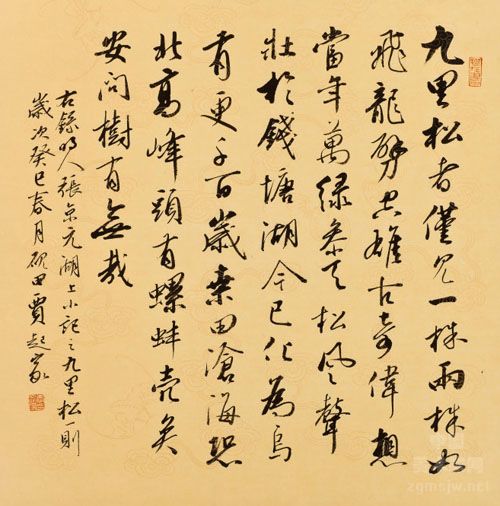 九里松者僅見一株兩株如
飛龍劈空雄古奇偉想
當年萬綠參天松風聲
壯於錢塘湖今已化為烏
有更千百歲桑田滄海恐
北高峰頭有螺蚌殼矣
安問樹有無哉
右錄明人張京元湖上小記之九里松一則
歲次癸巳春月硯田賈起家
zgmsjw.net